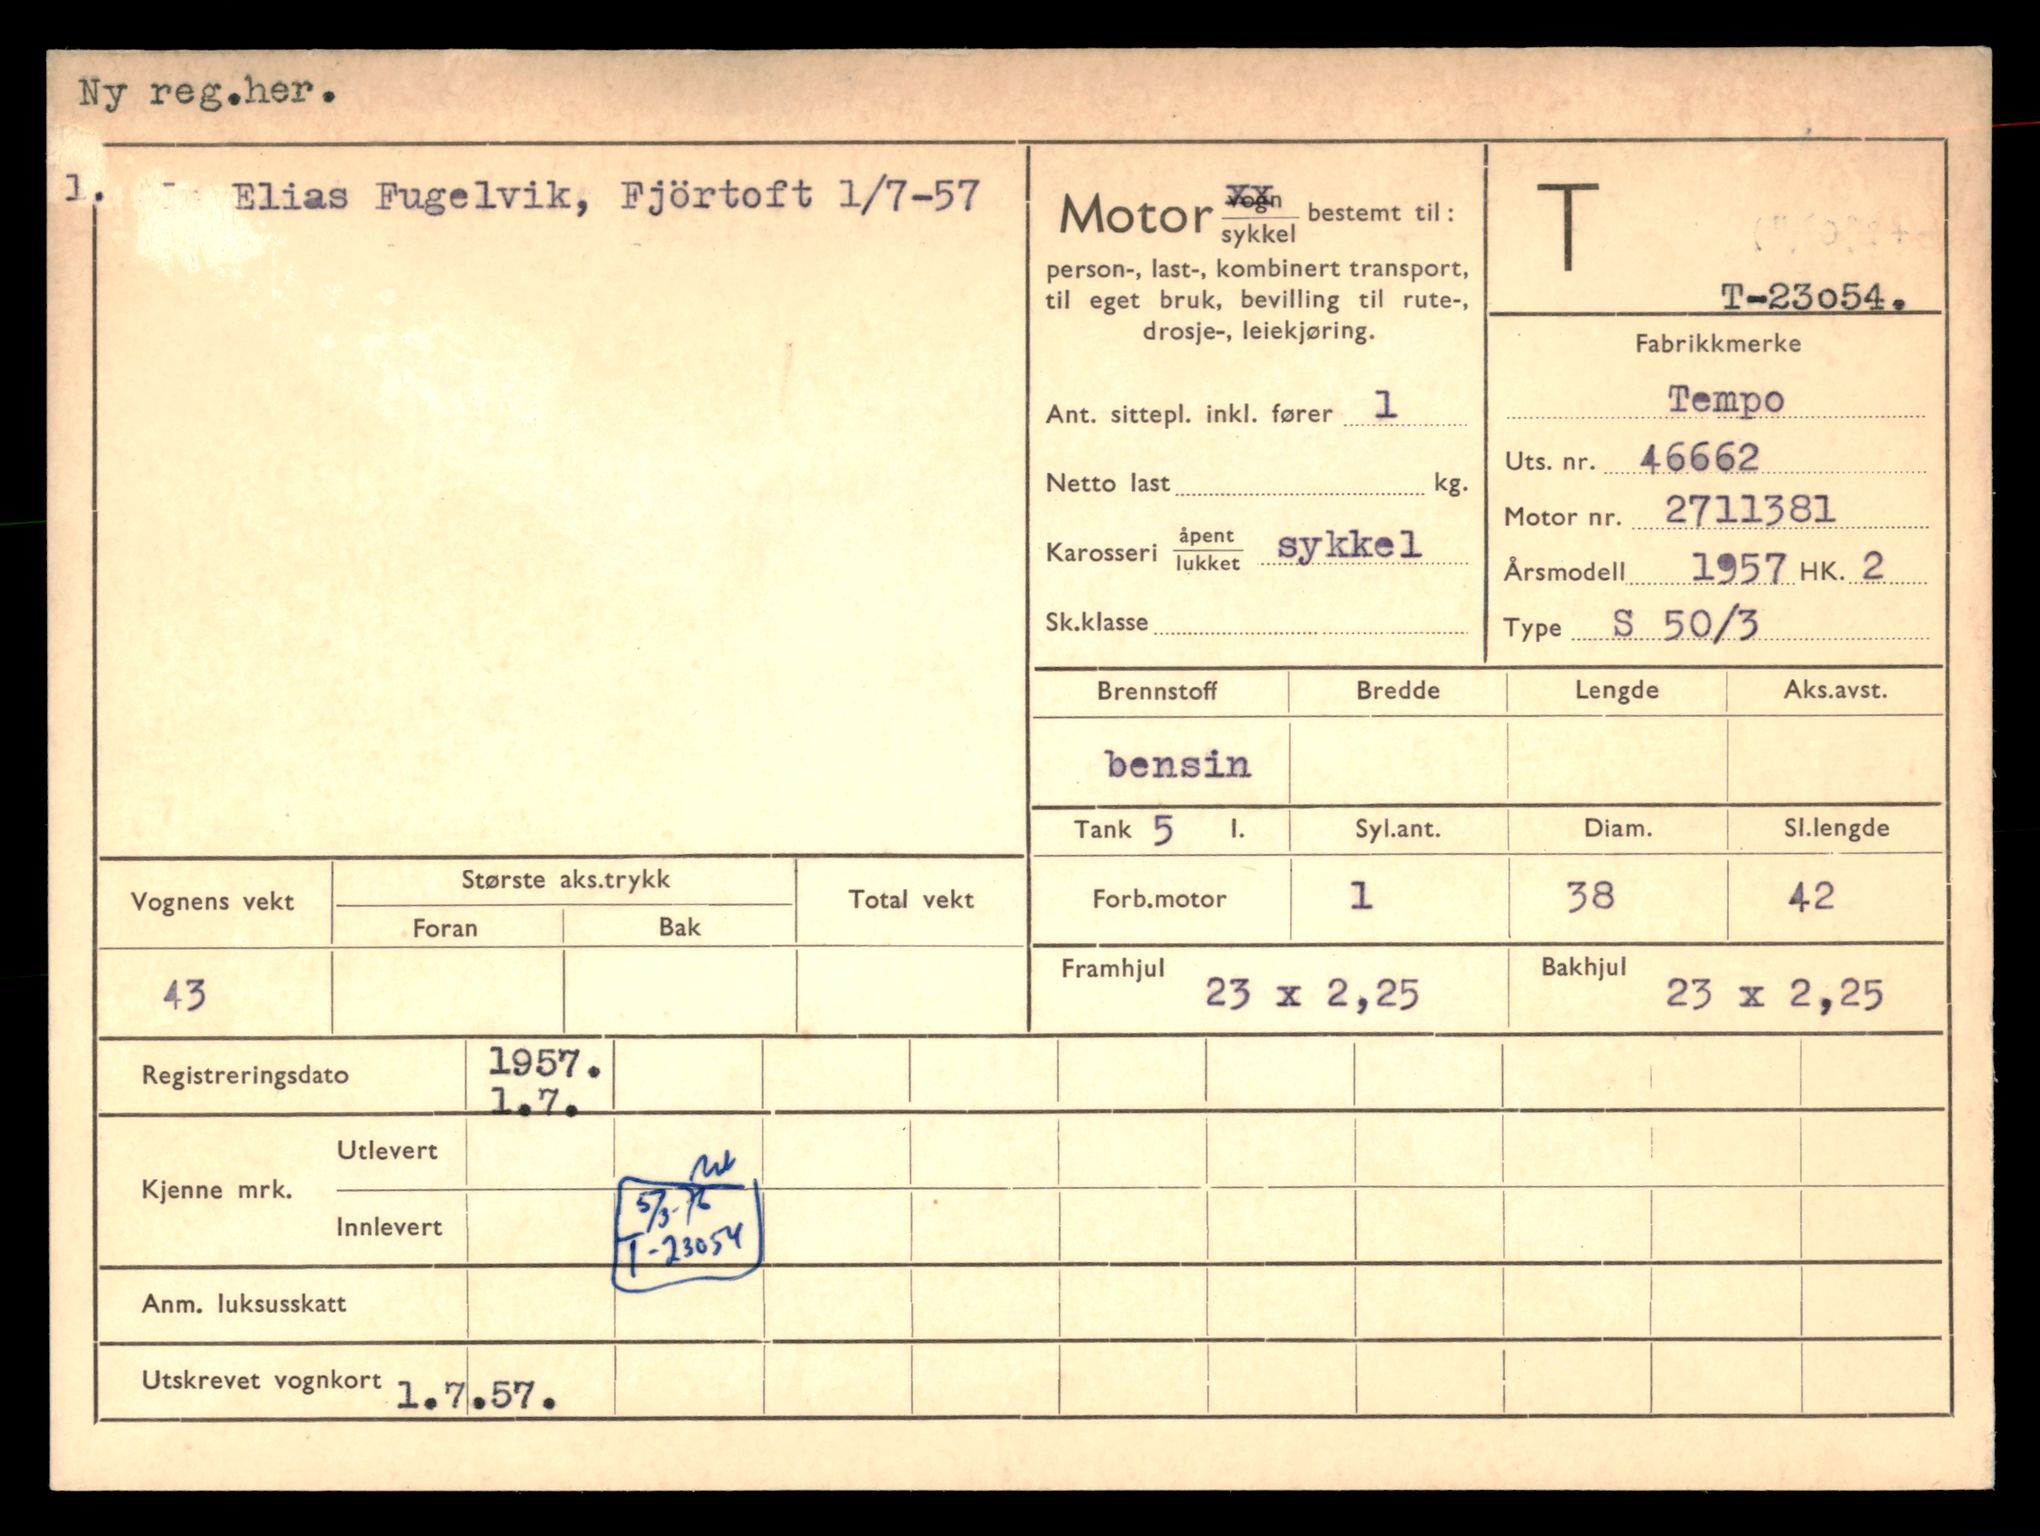 Ny reg.her.
1. Elias Fugelvik, Fjörtoft 1/7-57
Motor vogn/sykkel bestemt til:
person-, last-, kombinert transport,
til eget bruk, bevilling til rute-,
drosje-, leiekjøring.
Ant. sittepl. inkl. fører 1
Netto last kg.
Karosseri åpent/lukket sykkel
Sk.klasse
T
T-23054.
Fabrikkmerke
Tempo
Uts. nr. 46662
Motor nr. 2711381
Årsmodell 1957 HK. 2
Type S 50/3
Brennstoff Bredde Lengde Aks.avst.
bensin
Tank 5 l. Syl.ant. Diam. Sl.lengde
Forb.motor 1 38 42
Framhjul 23 x 2,25 Bakhjul 23 x 2,25
Vognens vekt Største aks.trykk Total vekt
Foran Bak
43
Registreringsdato 1957.
1.7.
Kjenne mrk.
Utlevert
Innlevert
T-23054
Anm. luksusskatt
Utskrevet vognkort 1.7.57.